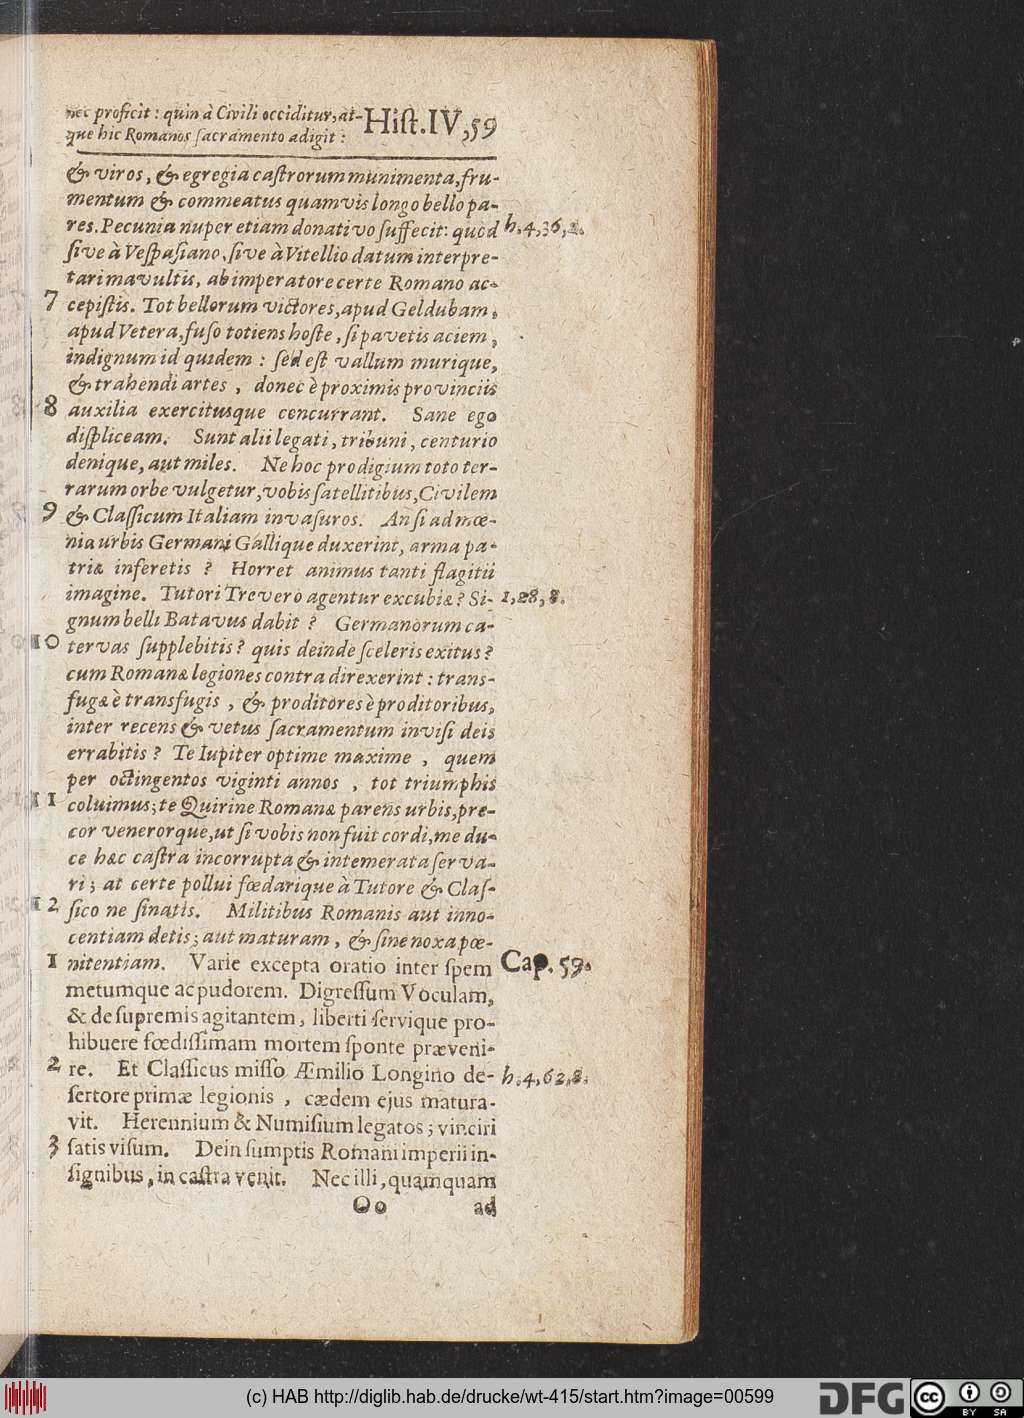 nec proficit: quin à Civili occiditur, at-
que hic Romanos sacramento adigit:
Hiſt. IV, 59
& viros, & egregia caſtrorum munimenta, fru-
mentum & commeatus quamvis longo bello pa-
res. Pecunia nuper etiam donativo ſuffecit: quod
h. 4, 36, 2.
ſive à Veſpaſiano, ſive à Vitellio datum interpre-
tari mavultis, ab imperatore certe Romano ac-
7 cepiſtis. Tot bellorum victores, apud Geldubam,
apud Vetera, fuſo totiens hoſte, ſi pavetis aciem,
indignum id quidem: ſed eſt vallum murique,
& trahendi artes, donec è proximis provinciis
8 auxilia exercitusque concurrant. Sane ego
diſpliceam. Sunt alii legati, tribuni, centurio
denique, aut miles. Ne hoc prodigium toto ter-
rarum orbe vulgetur, vobis ſatellitibus, Civilem
9 & Claſſicum Italiam invaſuros. An ſi ad mœ-
nia urbis Germani Gallique duxerint, arma pa-
triæ inferetis? Horret animus tanti flagitii
imagine. Tutori Trevero agentur excubiæ? Si-
1, 28, 8.
gnum belli Batavus dabit? Germanorum ca-
10 tervas ſupplebitis? quis deinde ſceleris exitus?
cum Romanæ legiones contra direxerint: trans-
fugæ è transfugis, & proditores è proditoribus,
inter recens & vetus ſacramentum inviſi deis
errabitis? Te Iupiter optime maxime, quem
per octingentos viginti annos, tot triumphis
11 coluimus; te Quirine Romanæ parens urbis, pre-
cor venerorque, ut ſi vobis non fuit cordi, me du-
ce hæc caſtra incorrupta & intemerata ſerva-
ri; at certe pollui fœdarique à Tutore & Claſ-
12 ſico ne ſinatis. Militibus Romanis aut inno-
centiam detis; aut maturam, & ſine noxa pœ-
1 nitentiam. Varie excepta oratio inter ſpem
Cap. 59.
metumque ac pudorem. Digreſſum Voculam,
& de ſupremis agitantem, liberti ſervique pro-
hibuere fœdiſſimam mortem ſponte præveni-
2 re. Et Claſſicus miſſo Æmilio Longino de-
h. 4, 62, 8.
ſertore primæ legionis, cædem ejus matura-
vit. Herennium & Numiſium legatos; vinciri
3 ſatis viſum. Dein ſumptis Romani imperii in-
ſignibus, in caſtra venit. Nec illi, quamquam
Oo ad
(c) HAB http://diglib.hab.de/drucke/wt-415/start.htm?image=00599
DFG
cc BY SA